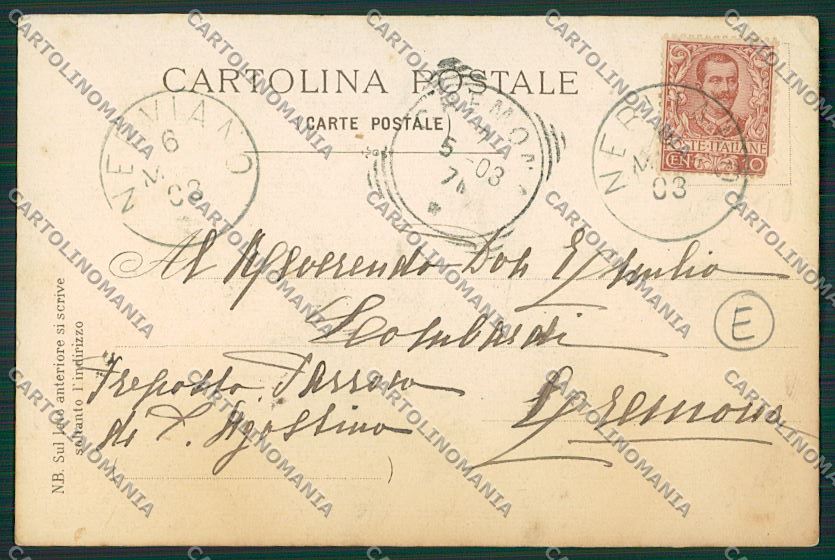 CARTOLINA POSTALE
(CARTE POSTALE)
NERVIANO
6
03
CREMONA
5-03
NERVIANO
03
POSTE-ITALIANE
CENT. 10
Al Reverendo Don Emilio
Lombardi
Preposto Parroco
di S. Agostino
Cremona
E
N.B. Sul lato anteriore si scrive
soltanto l'indirizzo
CARTOLINOMANIA